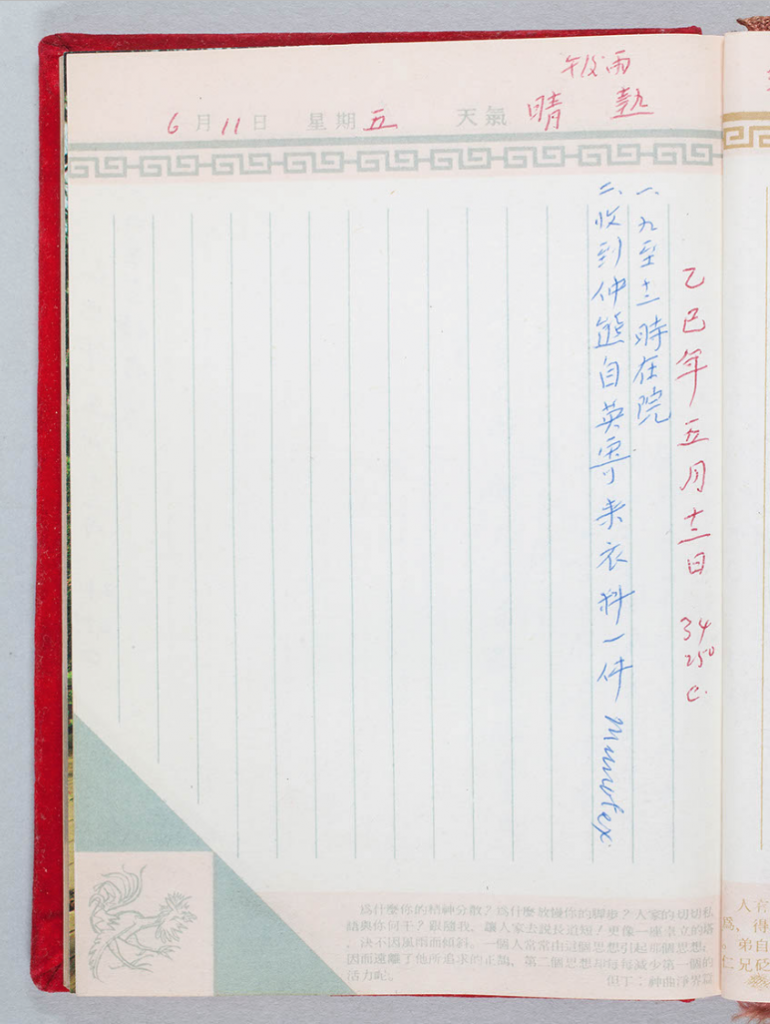 午後雨
6月11日 星期五 天氣 晴 熱
乙巳年五月十二日 34 25° C.
一、九至十二時在院
二、收到仲熊自英寄来衣料一件
為什麼你的精神分散?為什麼放慢你的腳步?人家的切切私
語與你何干?跟隨我,讓人家去說長道短!要像一座卓立的塔
,決不因風雨而傾斜。一個人常常由這個思想引起那個思想,
因而遠離了他所追求的正鵠,第二個思想却每每減少第一個的
活力呢。
但丁:神曲淨界篇